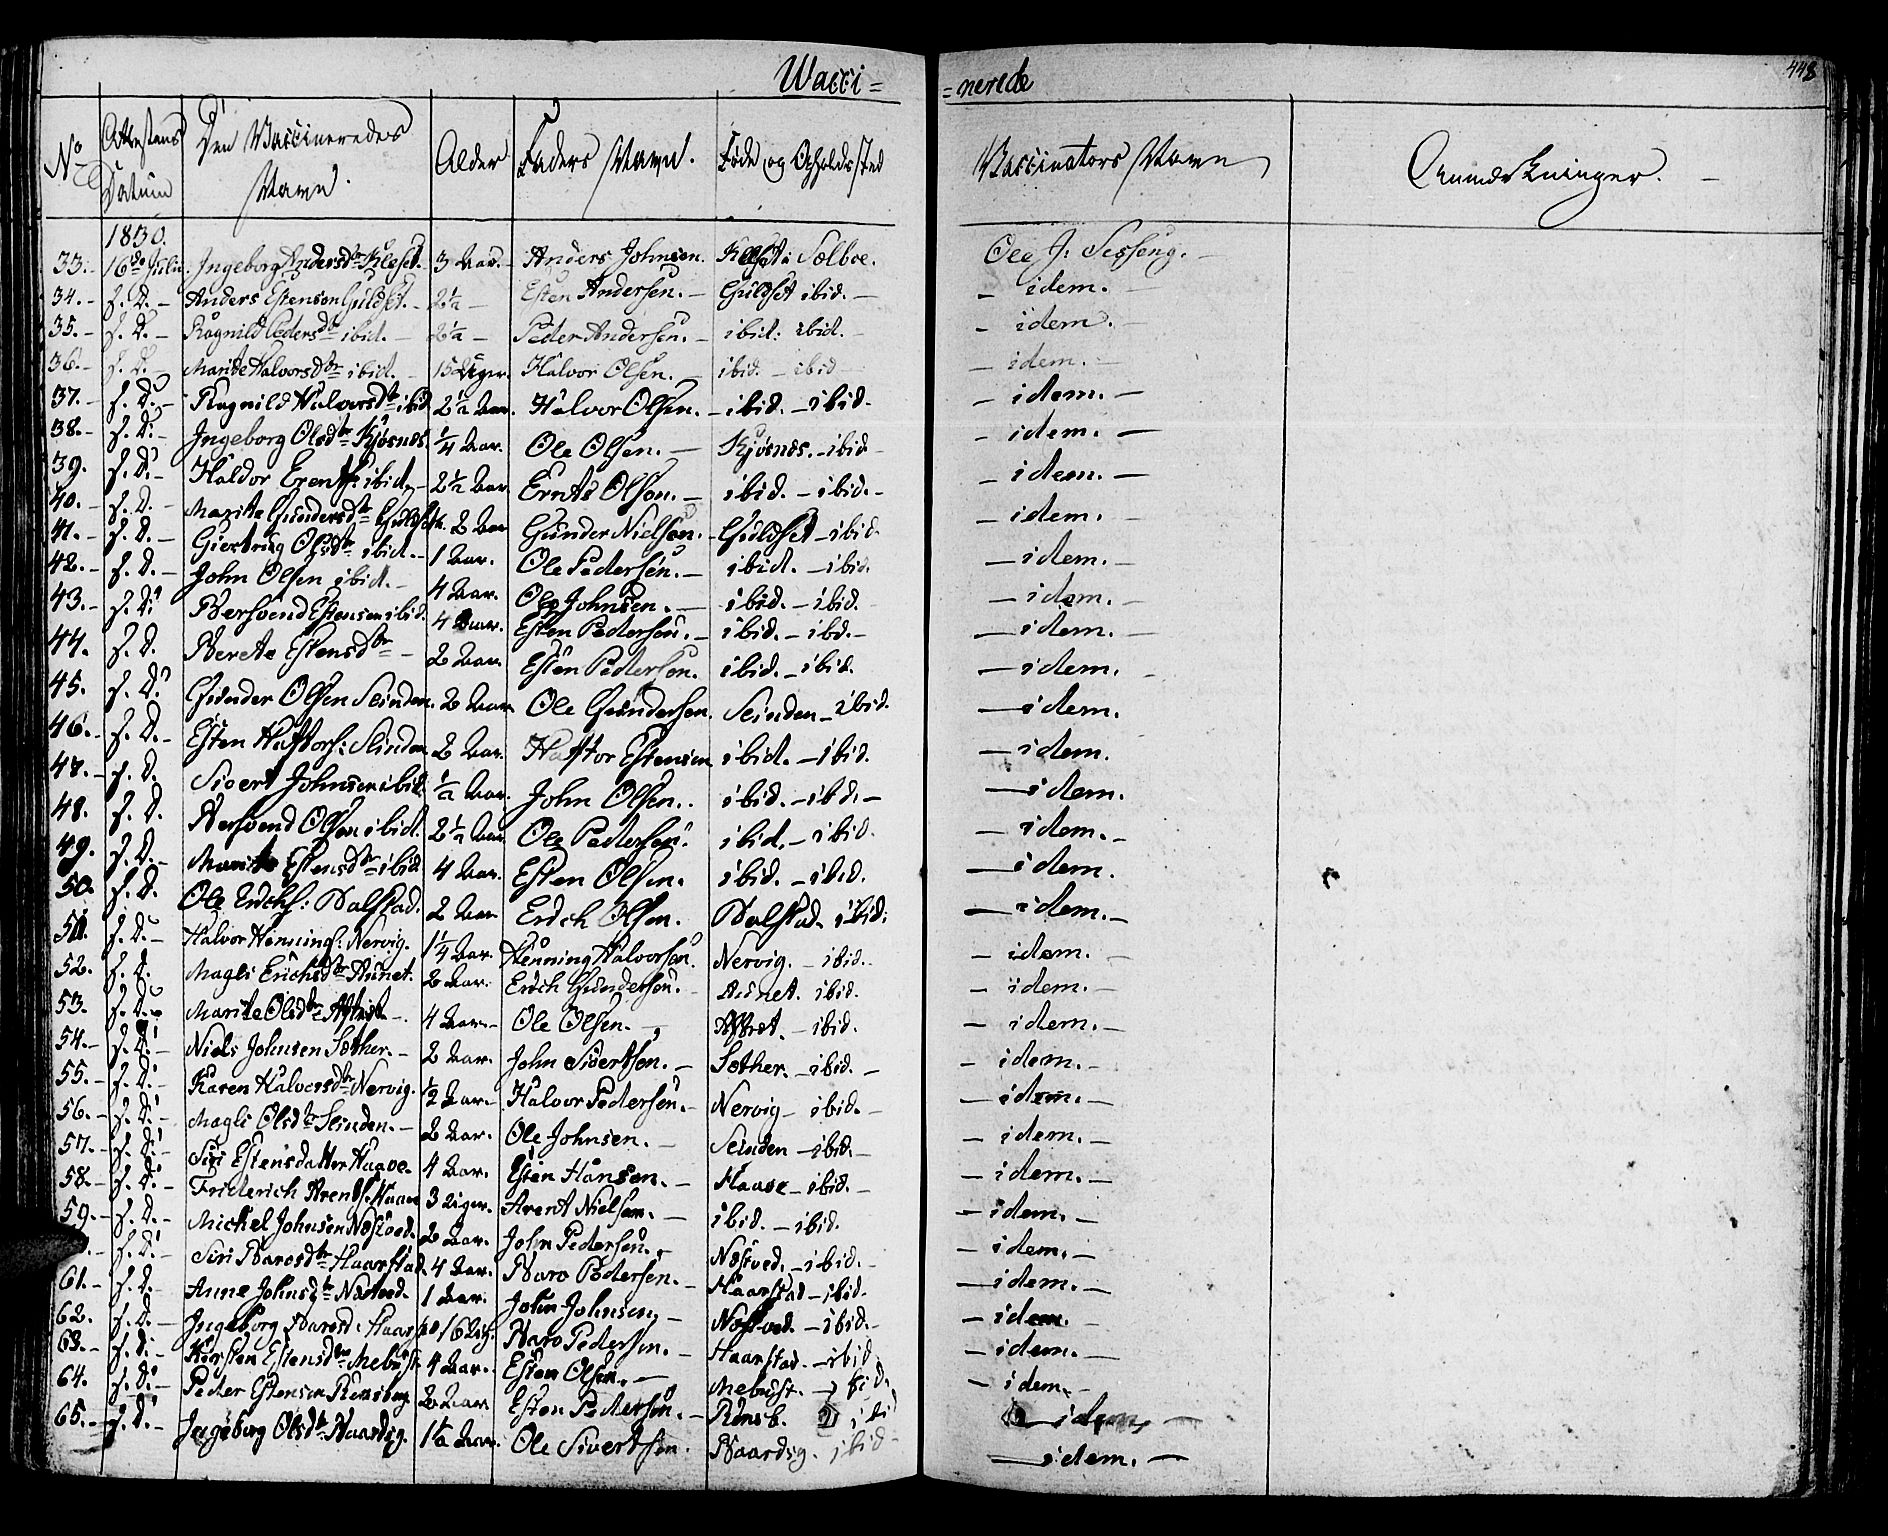 Wacci=
=nerede
448
No Attestens Datum Den Vaccineredes Navn. Alder Faders Navn. Føde og Opholdssted Vaccinators Navn Anmærkninger. -
1830.
33.- 16de Julii. Ingeborg Andersdtr Kleset. 3 Aar.- Anders Johnsen. Kleset i Sælboe. Ole J: Sesseng.-
34.- s. D.- Anders Estensen Guldset.- 2½ - Esten Andersen.- Guldset ibid.- - idem.-
35.- s. D.- Ragnild Pedersdtr ibid.- 2½ - Peder Andersen.- ibid: ibid.- - idem.-
36.- s. D.- Marite Halvorsdtr ibid.- 15 Uger. Halvor Olsen.- ibid.- ibid- - idem.-
37.- s. D.- Ragnild Halvorsdtr ibid 2½ Aar. Halvor Olsen.- ibid.- ibid.- - idem.-
38.- s. D.- Ingeborg Olsdtr Kjøsnes. ¼ Aar. Ole Olsen.- Kjøsnes.- ibid- - idem.-
39. s. D.- Haldor ibid.- 2½ Aar. Olsen.- ibid.- ibid.- - idem.-
40.- s. D.- Marite Gundersdtr Guldset. 2 Aar Gunder Nielsen.- Guldset- ibid. - idem.-
41.- s. D.- Giertrug Olsdtr ibid.- 1 Aar. Ole Pedersen.- ibid.- ibid. - idem.-
42.- s. D.- John Olsen ibid.- 4 Aar. Ole Johnsen.- ibid.- ibid. - idem.-
43.- s. D. Bersvend Estensen ibid. 4 Aar. Esten Pedersen.- ibid.- ibd.- - idem.-
44. s. D. Berete Estensdtr - 2 Aar. Esten Pedersen. ibid.- ibid. - idem.-
45. s. D. Gunder Olsen Slinden. 2 Aar. Ole Gundersen. Slinden- ibid. - idem.
46.- s. D.- Esten Haftors: Slinden 2 Aar. Haftor Estensen ibid.- ibid. - idem.
47.- s. D. Sivert Johnsen ibid. ½ Aar. John Olsen. ibid.- ibd.- - idem.
48. s. D. Bersvend Olsen ibid. 2½ Aar Ole Pedersen. ibid.- ibid. - idem.-
49. s. D.- Marite Estensdtr ibid. 4 Aar. Esten Olsen. ibid.- ibid. - idem.
50. s. D. Ole Erichs: Balstad. 2 Aar. Erich Olsen. Balstad. ibid. - idem.-
51. s. D.- Halvor Hennings: Nervig. 1¼ Aar. Henning Halvorsen. Nervig.- ibid.- - idem.
52. s. D. Magli Erichsdtr Aunet. 2 Aar. Erich Gundersen. Aunet. ibid. - idem.-
53. s. D. Marite Olsdtr 4 Aar.- Ole Olsen.- - ibid. - idem.-
54.- s. D.- Niels Johnsen Sæther.- 2 Aar. John Sivertsen.- Sæther.- ibid.- - idem.-
55.- s. D.- Karen Halvorsdtr Nervig. ½ Aar.- Halvor Pedersen.- Nervig- ibid.- - idem.-
56.- s. D.- Magli Olsdtr Slinden.- 2 Aar. Ole Johnsen.- Slinden- ibid.- - idem.-
57.- s. D.- Siri Estensdatter Haave. 4 Aar. Esten Hansen.- Haave- ibid.- - idem.-
58.- s. D.- Friderich Arents: Haave 3 Uger. Arent Nielsen.- ibid.- ibid. - idem.-
59.- s. D.- Michel Johnsen Næstved. 2 Aar. John Pedersen.- Næstved.- ibid.- - idem.-
s. D.- Siri Baarosdtr Haarstad. 4 Aar. Baaro Pedersen.- Haarstad- ibid. - idem.-
61.- s. D. Anne Johnsdtr Næstved. 1 Aar. John Johnsen.- Næstved.- ibid.- - idem.
62. s. D.- Ingeborg Baarosd: Haarstad 16 Ug. Baaro Pedersen.- Haarstad.- ibid. - idem.-
63.- s. D.- Kirsten Estensdtr Mebust 4 Aar. Esten Olsen.- Mebust.- ibid. - idem.-
64. s. D.- Peder Estensen Rønsberg 2 Aar. Esten Pedersen.- Rønsb. ibid - idem.-
65.- s. D.- Ingeborg Olsdtr Baardsg. 1½ Aar. Ole Sivertsen. Baardsg. ibid- - idem.-